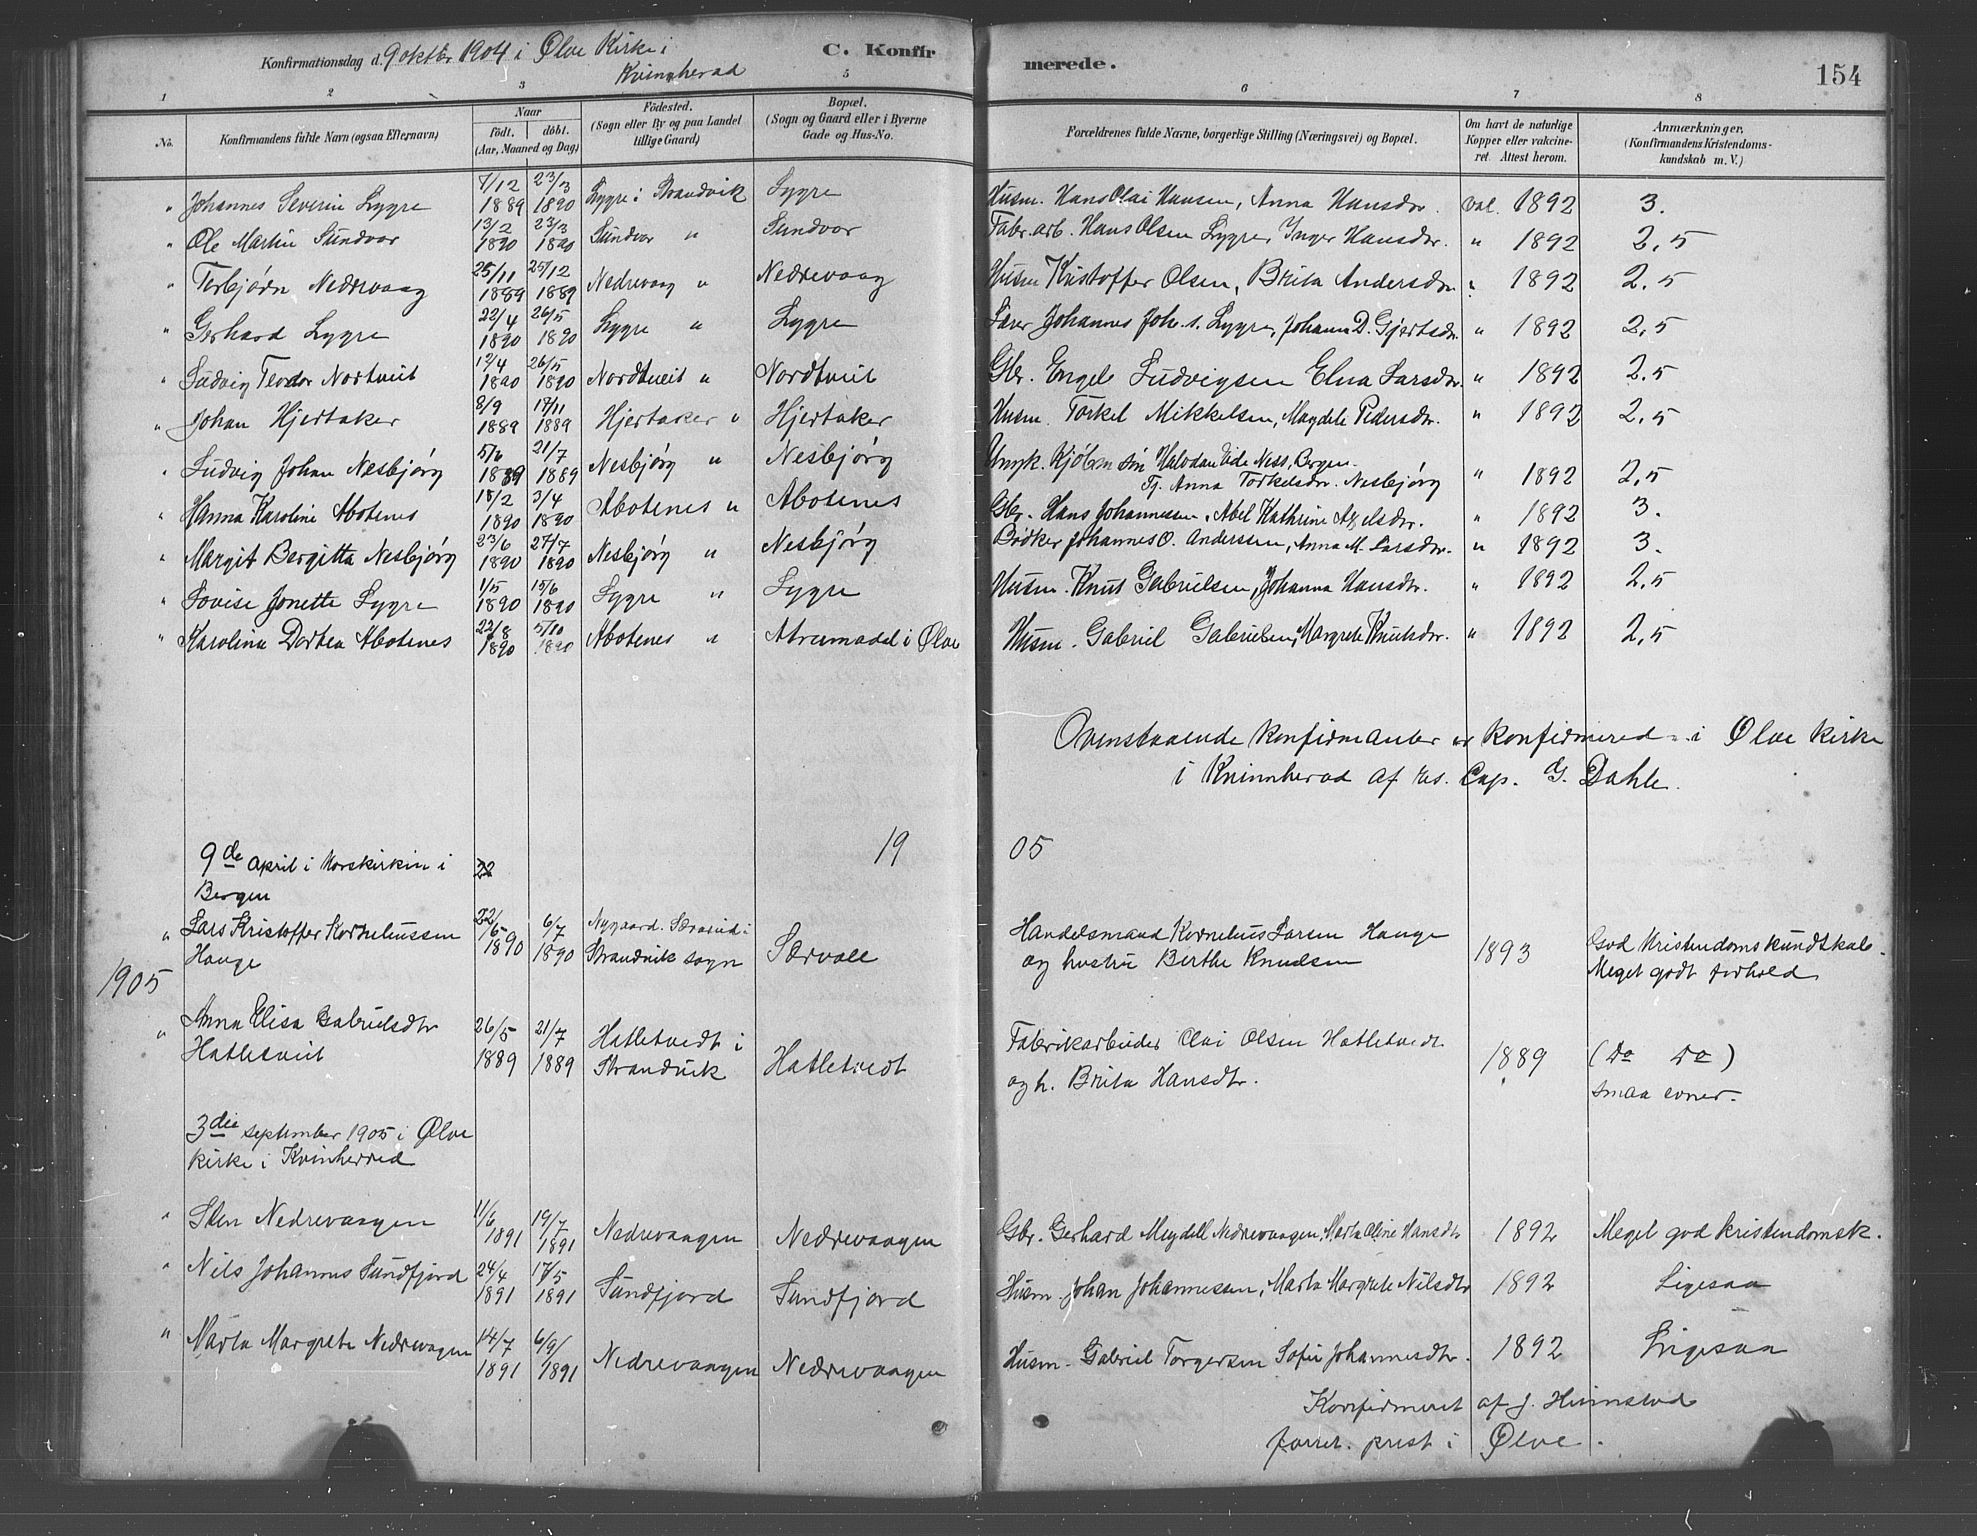 Konfirmationsdag d. 9 oktbr 1904 i Ølve Kirke i Kvinnherad
C. Konfir merede. 154
1 2 3 5 6 7 8
No. Konfirmandens fulde Navn (ogsaa Efternavn) Naar født. døbt. (Aar, Maaned og Dag) Fødested. (Sogn eller By og paa Landet tillige Gaard) Bopæl. (Sogn og Gaard eller i Byerne Gade og Hus-No. Forældrenes fulde Navne, borgerlige Stilling (Næringsvei) og Bopæl. Om havt de naturlige Kopper eller vakcineret. Attest herom. Anmærkninger. (Konfirmandens Kristendomskundskab m. V.)
" Johannes Severin Lygre 7/12 1889 23/3 1890 Lygre i Strandvik Lygre Husm. Hans Olai Hansen, Anna Hansdtr. val. 1892 3.
" Ole Martin Sundvor 13/2 1890 23/3 1890 Sundvor " Sundvor Fabr. arb. Hans Olsen Lygre, Inger Hansdtr. " 1892 2,5
" Torbjørn Nedrevaag 25/11 1889 25/12 1889 Nedrevaag " Nedrevaag Husm Kristoffer Olsen, Brita Andersdtr " 1892 2.5
" Gerhard Lygre 22/4 1890 26/5 1890 Lygre " Lygre Lærer Johannes Joh. s. Lygre, Johanna D. Gjertsdtr " 1892 2,5
" Ludvig Teodor Nortveit 17/4 1890 26/5 1890 Nordtveit " Nordtveit Gbr. Engel Ludvigsen Elna Larsdtr. " 1892 2.5
" Johan Hjertaker 8/9 1889 17/11 1889 Hjertaker " Hjertaker Husm. Torkel Mikkelsen, Magdele Pedersdtr. " 1892 2,5
" Ludvig Johan Nesbjørg 5/6 1889 21/7 1889 Nesbjørg " Nesbjørg Ungk. Halvdan Ness, Bergen.
Tj. Anna Torkelsdtr. Nesbjørg " 1892 2,5
" Hanna Karoline Abotenes 18/2 1890 3/4 1890 Abotenes " Abotenes Gbr. Hans Johannessen, Abel Kathrine Axelsdtr. " 1892 3.
" Margit Bergitta Nesbjørg 23/6 1890 27/7 1890 Nesbjørg " Nesbjørg Bødker Johannes O. Anderssen, Anna M. Larsdtr. " 1892 3.
" Lovise Jonette Lygre 1/5 1890 15/6 1890 Lygre " Lygre Husm. Knut Gabrielsen, Johanna Hansdtr. " 1892 2,5
" Karolina Dortea Abotenes 22/8 1890 5/10 1890 Abotenes " i Ølve Husm. Gabriel Gabrielsen, Margrete Knutsdtr. " 1892 2,5
Ovenstaaende konfirmanter er konfirmered i Ølve kirke
i Kvinnherad af res. Cap. G. Dahle.
1905
9de april i Korskirken i
Bergen
" Lars Kristoffer Korneliussen Hauge 22/5 1890 6/7 1890 Nygaard. Strandvik sogn Særvoll Handelsmand Kornelius Larsen Hauge
og hustru Berthe Knudsen 1893 God Kristendomskundtskab.
Meget godt forhold
1905
" Anna Elisa Gabrielsdtr
Hatletveit 26/5 1889 21/7 1889 Hatletvedt i Strandvik Hatletvedt Fabrikarbeider Olai Olsen Hatletvedt
og h. Brita Hansdtr. 1889 (Do Do)
smaa evner.
3die september 1905 i Ølve
kirke i Kvinherred
" Sten Nedrevaagen 11/6 1891 19/7 1891 Nedrevaagen Nedrevaagen Gbr. Gerhard Meydell Nedrevaagen, Marta Oline Hansdtr 1892 Meget god kristendomsk.
" Nils Johannes Sundfjord 24/4 1891 17/5 1891 Sundfjord Sundfjord Husm. Johan Johannessen, Marta Margrete Nilsdtr 1892 Ligesaa
" Marta Margrete Nedrevagen 14/7 1891 6/9 1891 Nedrevaagen Nedrevaagen Husm. Gabriel Torgersen Sofie Johannesdtr. 1892 Ligesaa
Konfirmeret af J.
prest i Ølve.